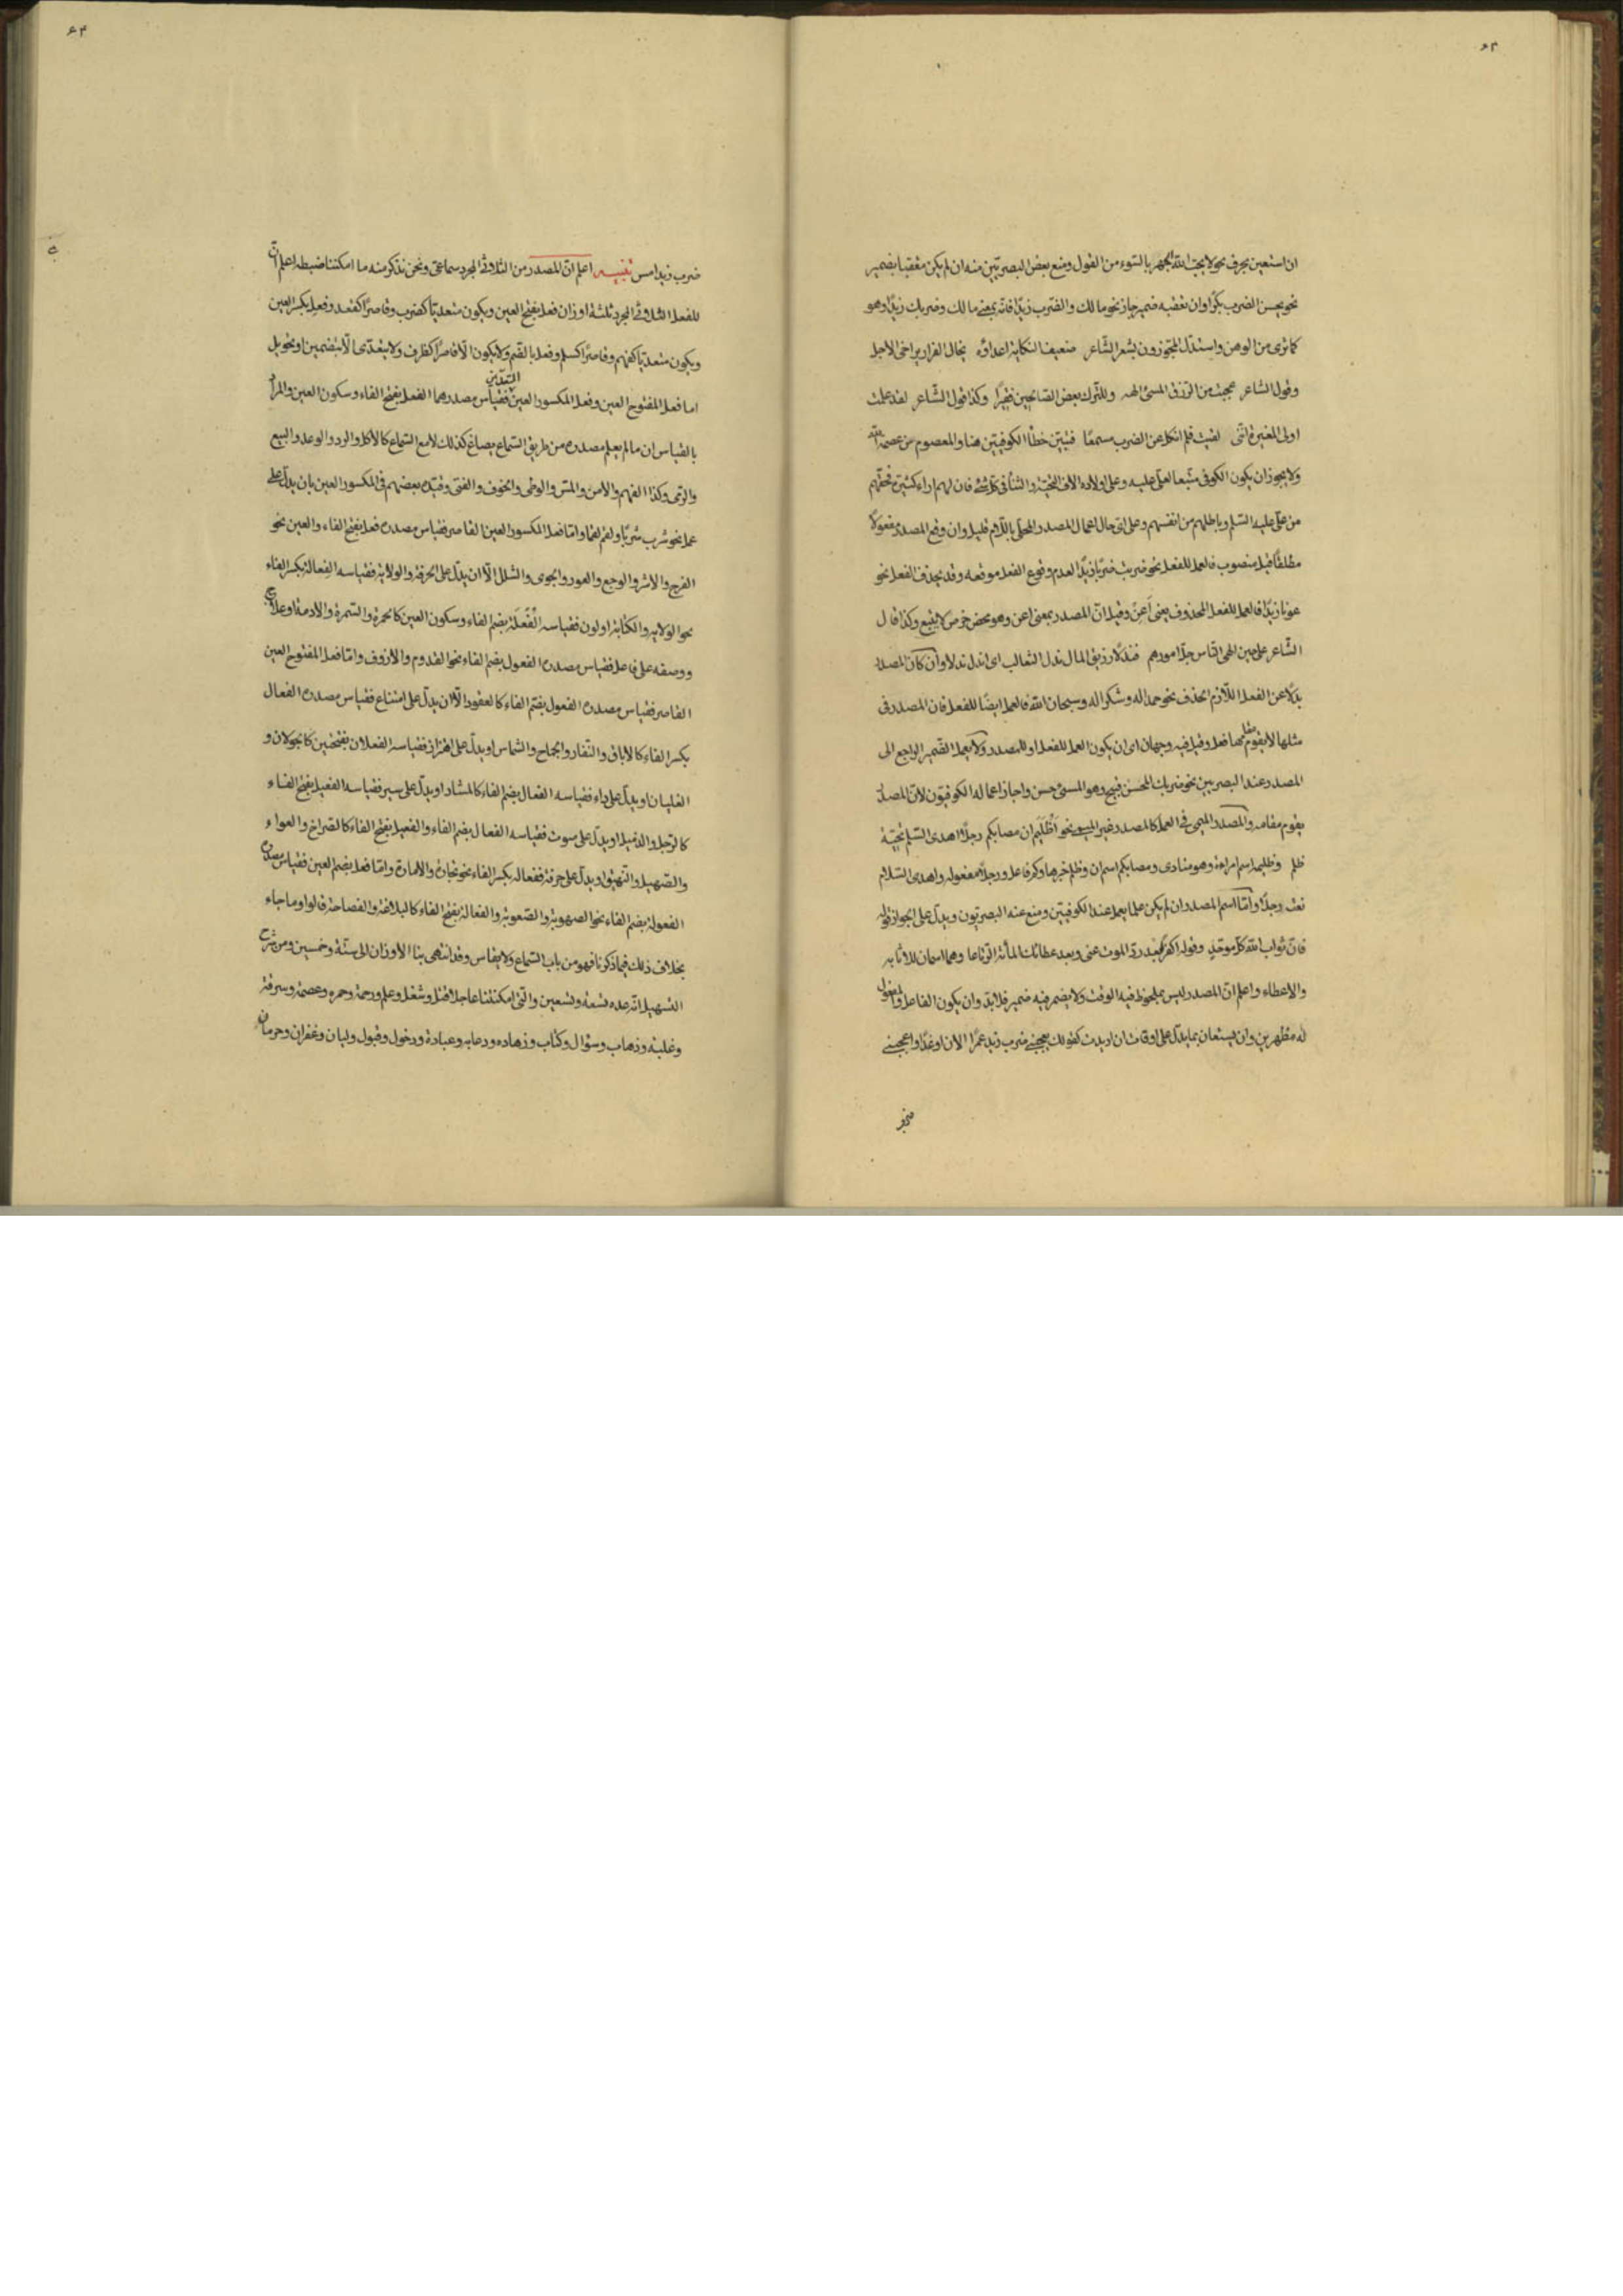 ان استعين بحرف نحو لا يحب الله الجهر بالسوء من القول ومنع بعض البصريين منه ان لم يكن معقبا بضمير
نحو يحسن الضرب بكرًا وان تعقبه ضمير جاز نحو مالك والضرب زيدًا فانه بمعنى مالك وضربك زيدًا وهو
كما ترى من الوهن واستدل المجوزون بشعر الشاعر ضعيف النكاية اعداؤه يخال الفرار يراخى الاجل
وقول الشاعر عجبت من الرزق المسئ الهه وللترك بعض الصالحين فقيرًا وكذا قول الشاعر لقد علمت
اولى المغيرة انّنى لقيت فلم انكل عن الضرب مسمعًا فتبيّن خطأ الكوفيّين هنا والمعصوم من عصمه الله
ولا يجوز ان يكون الكوفى متّبعا لعلّى عليه وعلى اولاده الاف التحيّة والثنأ فى كلّ شئ فان لهم اراء كثيرة فحقّهم
من علّى عليه السّلم وباطلهم من انفسهم وعلى اىّ حال اعمال المصدر المحلّى باللّام قليل وان وقع المصدر مفعولًا
مطلقًا قبل منصوب فالعمل للفعل نحو ضربت ضربًا زيدًا لعدم وقوع الفعل موقعه وقد يحذف الفعل نحو
عونا زيدًا فالعمل للفعل المحذوف يعنى أعن وقيل انّ المصدر بمعنى اعن وهو محض خرص لا يتّبع وكذا قال
الشّاعر على حين الهى النّاس جلّ امورهم فندلًا رزيق المال ندل الثعالب اى اندل ندلا وان كان المصدر
بدلًا عن الفعل اللّازم الحذف نحو حمدا له وشكرا له وسبحان الله فالعمل ايضًا للفعل فان المصدر فى
مثلها لا يقوم مقامها فعل وقيل فيه وجهان اى ان يكون العمل للفعل او للمصدر ولا يعمل الضّمير الراجع الى
المصدر عند البصريين نحو ضربك المحسن قبيح وهو المسئ حسن واجاز اعماله الكوفيّون لانّ المصدر
يقوم مقامه والمصدر الميمى فى العمل كالمصدر غير الميمى نحو أظُلَيم ان مصابكم رجلًا اهدى السّلم تحيّة
ظلم وظليم اسم امراءة وهو منادى ومصابكم اسم ان وظلم خبرها وكم فاعل ورجلًا مفعوله واهدى السّلام
نعت رجلًا وامّا اسم المصدر ان لم يكن علما يعمل عند الكوفيّين ومنع عنه البصريّون ويدلّ على الجواز قوله
فانّ ثواب الله كلّ موحّدٍ وقوله اكفرًا بعد ردّ الموت عنى وبعد عطائك المائة الرّتاعا وهما اسمان للاثابه
والاعطاء واعلم انّ المصدر ليس بملحوظ فيه الوقت ولا يضمر فيه ضمير فلا بدّ وان يكون الفاعل والمفعول
له مظهرين وان يستعان بما يدلّ على اوقات ان اريدت كقولك يعجبنى ضرب زيد عمرًا الان او غدًا واعجبنى
ضرب زيد امس تنبيه اعلم انّ المصدر من الثلاثى المجرد سماعىّ ونحن نذكر منه ما امكننا ضبطه اعلم انّ
للفعل الثلاثى المجرد ثلثة اوزان فعل بفتح العين ويكون متعديّا كضرب وقاصرًا كقعد وفعل بكسر العين
ويكون متعديّا كفهم وقاصرًا كسلم وفعل بالضّم ولا يكون الّا قاصرًا كظرف ولا يتعدّى الّا بتضمين او تحويل
اما فعل المفتوح العين وفعل المكسور العين المتعدّيين فقياس مصدرهما الفعل بفتح الفاء وسكون العين والمراد
بالقياس ان ما لم يعلم مصدره من طريق السّماع يصاغ كذلك لا مع السّماع كالأكل والرد والوعد والبيع
والرّمى وكذا الفهم والامن والمسّ والوطى والخوف والفتى وقيّده بعضهم فى المكسور العين بان يدلّ على
عمل نحو شرب شربًا ولقم لقما وامّا فعل المكسور العين القاصر فقياس مصدره فعل بفتح الفاء والعين نحو
الفرح والاشر والوجع والعور والجوى والشلل الّا ان يدلّ على الحرفة والولاية فقياسه الفِعالة بكسر الفاء
نحو الولايه والكتابة او لون فقياسه الْفُعْلَة بضم الفاء وسكون العين كالحمرة والسّمرة والادمة او علاج
ووصفه على فاعل فقياس مصدره الفعول بضم الفاء نحو القدوم والازوف وامّا فعل المفتوح العين
القاصر فقياس مصدره الفعول بضّم الفاء كالعقود الّا ان يدلّ على امتناع فقياس مصدره الفعال
بكسر الفاء كالاباق والنّفار والجماح والشماس او يدلّ على اهتزاز فقياسه الفعلان بفتحتين كالجولان و
الغليان او يدلّ على داء فقياسه الفعال بضم الفاء كالمشاء او يدلّ على سير فقياسه الفعيل بفتح الفاء
كالرّحيل والذميل او يدلّ على صوت فقياسه الفعال بضم الفاء والفعيل بفتح الفاء كالصّراخ والعواء
والصّهيل والنّهيق او يدلّ على حرفة ففعاله بكسر الفاء نحو تجارة والامارة وامّا فعل بضم العين فقياس مصدره
الفعولة بضم الفاء نحو الصهوبة والصّعوبة والفعالة بفتح الفاء كالبلاغة والفصاحة قالوا وما جاء
بخلاف ذلك فيما ذكرنا فهو من باب السّماع ولا يقاس وقد انتهى بنا الأوزان الى ستّة وخمسين ومن شرح
التسّهيل انّه عده تسعة وتسعين والّتى امكنتنا عاجلا قتل وشغل وعلم ورحمة وحمره وعصمة وسرقة
وغلبة وذهاب وسؤال وكتاب وزهاده ودعابه وعبادة ودخول وقبول وليان وغفران وحرمان